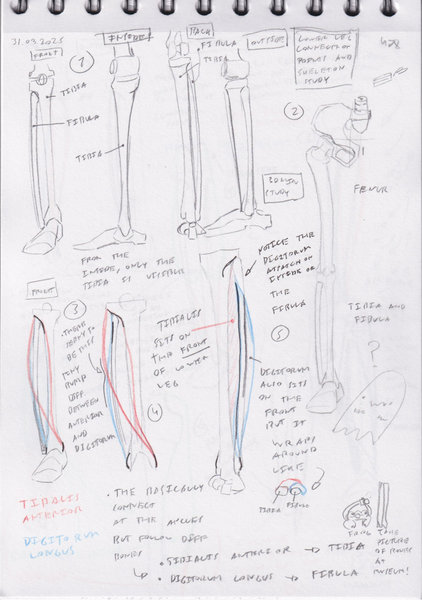 31.03.2025
FRONT
1
INSIDE
BACK
OUTSIDE
LOWER LEG
CONNECTION
POINTS AND
SKELETON
STUDY
TIBIA
FIBULA
FIBULA
TIBIA
TIBIA
2
FEMUR
30 MIN
STUDY
FROM THE
INSIDE, ONLY THE
TIBIA IS VISIBLE
NOTICE THE
DIGITORUM
ATTACH ON
INSIDE OF
THE
FIBULA
FRONT
3
THERE
TINY
BUMP
DIFF
BETWEEN
ANTERIOR
AND
DIGITORUM
4
TIBIALIS
SITS ON
THE FRONT
OF LOWER
LEG
5
DIGITORUM
ALSO SITS
ON THE
FRONT
BUT IT
WRAPS
AROUND
LIKE
TIBIA FIBULA
TIBIA AND
FIBULA
?
TIBALIS
ANTERIOR
DIGITORUM
LONGUS
• THE BASICALLY
CONNECT
AT THE ANCLES
BUT FOLLOW DIFF
BONES
• TIBIALIS ANTERIOR → TIBIA
• DIGITORUM LONGUS → FIBULA
TAKE
PICTURE
OF BONES
AT
MUSEUM!